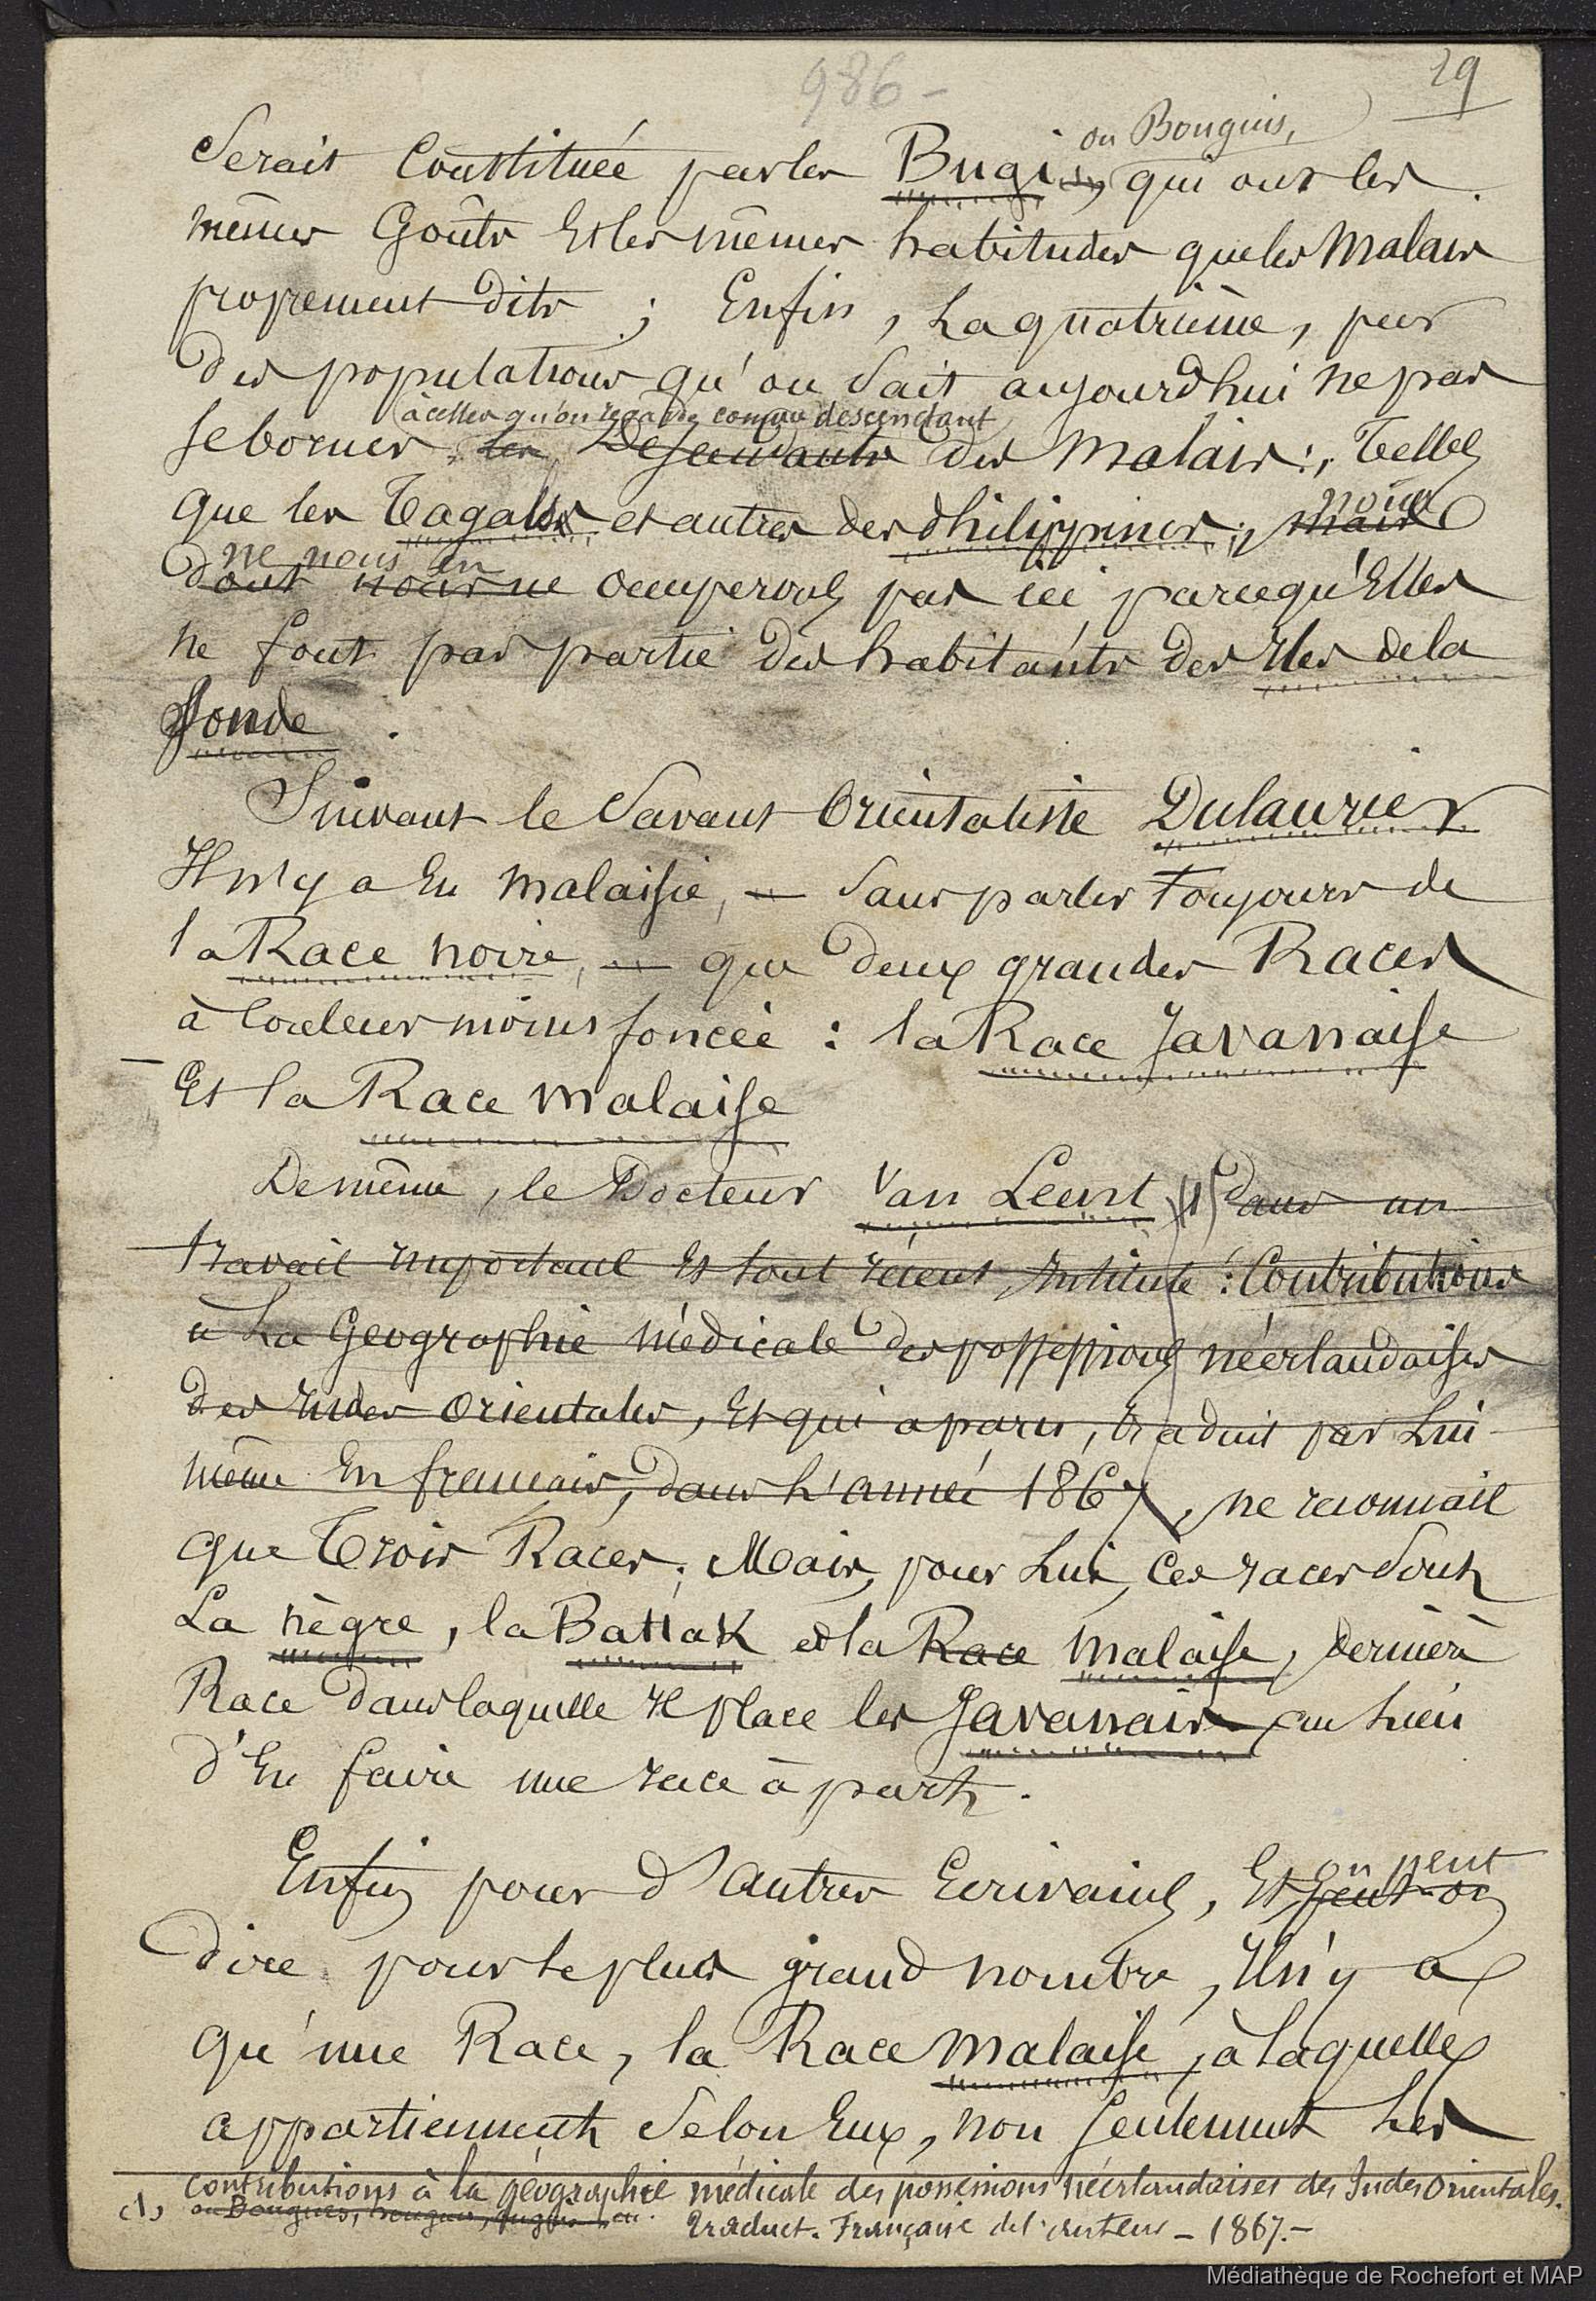 986 -
29
ou Bouguis,
Serait Constituée par les Bugis, qui ont les
mêmes Goûts Et les mêmes habitudes que les Malais
proprement dits ; Enfin, La quatrième, par
des populations qu'on Sait aujourd'hui ne pas
à celles qu'on regarde comme descendant
se borner les Descendants des Malais :, Telles
que les Tagals et autres des Philippines ; mais nous
ne nous en
dont nous ne occuperons pas ici parcequ'Elles
ne font pas partie des habitants des Iles de la
Sonde .
Suivant le Savant Orientaliste Dulaurier
Il n'y a En Malaisie, — Sans parler Toujours de
la Race noire, — que deux grandes Races
à Couleur moins foncée : la Race Javanaise
Et la Race malaise
De même, le Docteur Van Leent (1) dans un
travail important Et tout récent, Intitulé : Contributions
à La Géographie médicale des possessions néerlandaises
des Indes Orientales, Et qui a paru, traduit par Lui
même En français, dans L'année 1867, ne reconnait
que Trois Races ; Mais, pour Lui, Ces races Sont
La nègre, la Battak et la Race malaise, dernière
Race dans laquelle Il place les Javanais au Lieu
d'En faire une race à part.
Enfin pour d'autres Ecrivains, Et peut-on
on peut
dire pour le plus grand nombre, Il n'y a
qu'une Race, la Race malaise, à laquelle
appartiennent Selon Eux, non seulement Les
(1) contributions à la géographie médicale des possessions néerlandaises des Indes Orientales.
ou Bougues,
Traduct. Française de l'auteur - 1867. -
Médiathèque de Rochefort et MAP